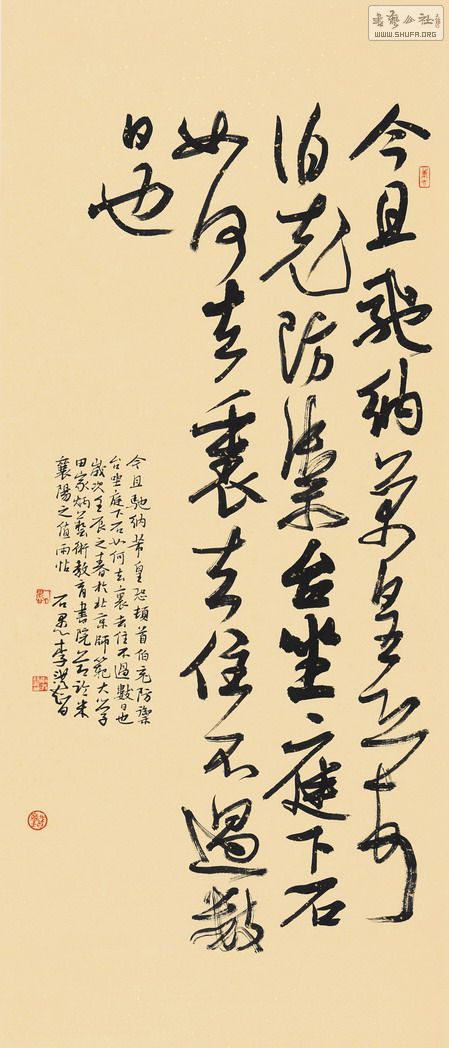 書藝公社
WWW.SHUFA.ORG
今且馳納芾皇恐頓首
伯充防禦台坐庭下石
如何去裏去住不過數
日也
今且馳納芾皇恐頓首伯充防禦
台坐庭下石如何去裏去住不過數日也
歲次壬辰之春於北京師範大學
田家炳藝術教育書院節臨米
襄陽之值雨帖
李洪智